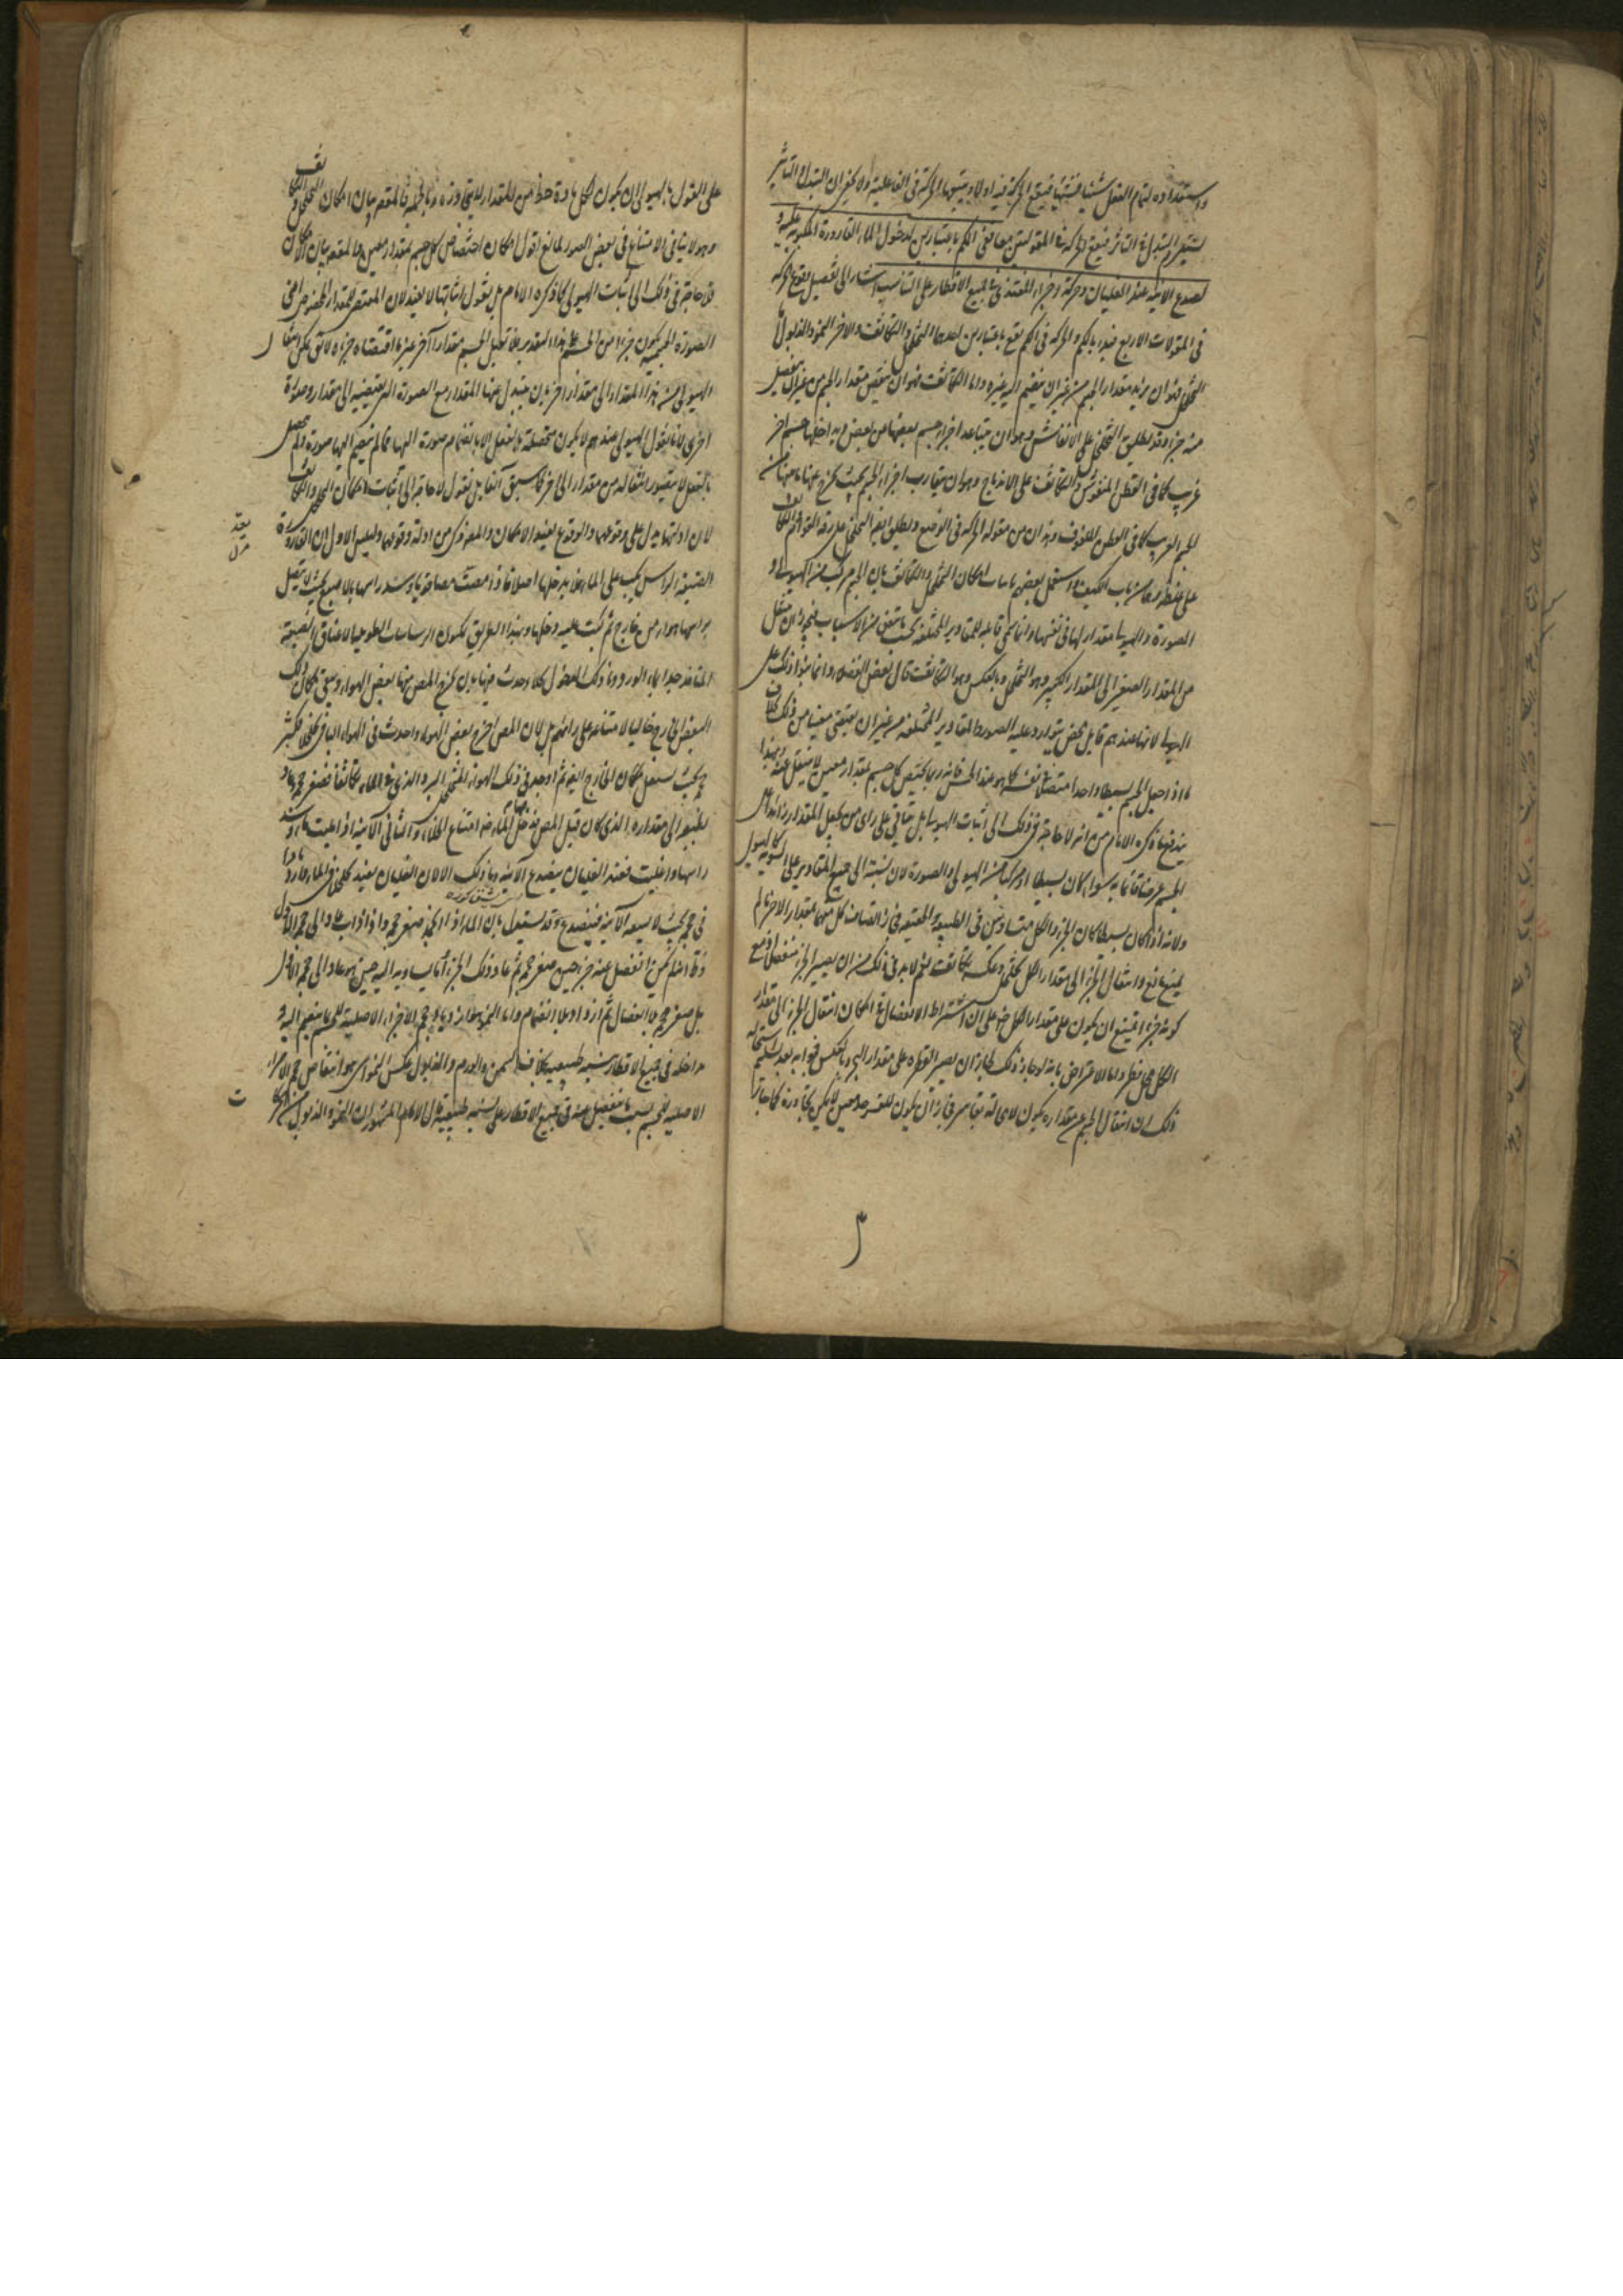 واستعداده لتمام الفعل شيئا فشيئا فيقع الحركة فيه اولا وبتبعيتها الحركة في الفاعلية ولا يخفى ان التبدل في التأثير
يستلزم التبدل في التأثر فيقع الحركة في المقولتين معا ففي الكم باعتبارين لدخول الماء القارورة المكبوبة عليه و
تصدع الآنية عند الغليان وحركة اجزاء المغتذي في جميع الاقطار على التناسب اشار الى تفصيل وقوع الحركة
في المقولات الاربع فبدء بالكم والحركة في الكم يقع باعتبارين احدهما التخلخل والتكاثف والاخر النمو والذبول اما
التخلخل فهو ان يزيد مقدار الجسم من غير ان ينضم اليه غيره واما التكاثف فهو ان ينقص مقدار الجسم من غير ان ينفصل
منه جزء وقد يطلق التخلخل على الانتفاش وهو ان يتباعد اجزاء جسم بعضها من بعض ويداخلها جسم اخر
غريب كما في القطن المنفوش والتكاثف على الاندماج وهو ان يتقارب اجزاء الجسم بحيث يخرج عنها ما بينها من
الجسم الغريب كما في القطن الملفوف وهذان من مقولة الحركة في الوضع ويطلق ايضا التخلخل على رقة القوام والتكاثف
على غلظه وهما من باب الكيف واستدل بعضهم باثبات امكان التخلخل والتكاثف بان الجسم مركب من الهيولى و
الصورة والهيولى لا مقدار لها في نفسها وانما هي قابلة للمقادير المختلفة بحسب ما يتفق من الاسباب فيجوز ان ينتقل
من المقدار الصغير الى المقدار الكبير وهو التخلخل وبالعكس وهو التكاثف قال بعض الفضلاء وانما بنوا ذلك على
الهيولى لانها عندهم قابل محض يتوارد عليه الصور والمقادير المختلفة من غير ان يقتضي معينا من ذلك بخلاف
ما اذا جعل الجسم بسيطا واحدا متصلا في نفسه كما هو عند الحس فانه ربما يختص كل جسم بمقدار معين لا ينتقل عنه وبهذا
يندفع ما ذكره الامام من انه لا حاجة في ذلك الى اثبات الهيولى بل يتأتى على راى من يجعل المقدار زائدا على
الجسم عرضا قائما به سواء كان بسيطا او مركبا من الهيولى والصورة لان نسبته الى جميع المقادير على السوية كالهيولى
ولانه اذا كان بسيطا كان الجزء والكل متساويين في الطبيعة والحقيقة فجاز اتصاف كل منهما بمقدار الاخر ما لم
يمنع مانع وانتقال الجزء الى مقدار الكل تخلخل وعكسه تكاثف نعم لابد في ذلك من ان يصير الجزء منفصلا اذ مع
كونه جزءا يمتنع ان يكون على مقدار الكل ضرورة على ان اشتراط الانفصال في امكان انتقال الجزء الى مقدار
الكل محل نظر واما الاعتراض بانه لو جاز ذلك لجاز ان يصير القطرة على مقدار البحر وبالعكس فجوابه بعد تسليم استحالة
ذلك ان انتقال الجسم عن مقداره يكون لا محالة بقاسر فجاز ان يكون للقسر حد معين لا يمكن تجاوزه كما جاز
على القول بالهيولى ان يكون لكل مادة حظ من المقدار لا يتجاوزه وبالجملة فالمقصود بيان امكان التخلخل والتكاثف
وهو لا ينافي الامتناع في بعض الصور لمانع اقول امكان اختصاص كل جسم بمقدار معين والمقصود بيان الامكان
فلا حاجة في ذلك الى اثبات الهيولى كما ذكره الامام بل نقول اثباتها لا يفيد لان المقتضي للمقدار المخصوص اعني
الصورة الجسمية يكون جزءا من الجسم على هذا التقدير فلا يقبل الجسم مقدارا آخر غير ما اقتضاه جزؤه
الهيولى من هذا المقدار الى مقدار آخر بان يتبدل عنها المقدار مع الصورة التي يقتضيه الى مقدار وصورة
اخرى لانا نقول الهيولى عندهم لا يكون متحصلة بالفعل الا بانضمام صورة اليها فما لم ينضم اليها صورة ولم يحصل
بالفعل لا يتصور انتقاله من مقدار الى آخر كما سبق آنفا بل نقول لا حاجة الى اثبات امكان التخلخل والتكاثف
لان ادلتها يدل على وقوعها والوقوع يفيد الامكان والمصنف ذكر من ادلة وقوعها دليلين الاول ان القارورة
الضيقة الراس يكب على الماء فلا يدخلها اصلا فاذا مصت مصا قويا وسد راسها بالاصبع بحيث لا يتصل
براسها هواء من خارج ثم كبت عليه دخلها وبهذا الطريق يملئون الرشاشات الطويلة الاعناق الضيقة
المنافذ جدا بماء الورد وما ذلك الدخول لخلاء حدث فيها بان يخرج المص منها بعض الهواء ويبقى مكان ذلك
البعض الخارج خاليا لامتناعه على رائهم بل لان المص اخرج بعض الهواء واحدث في الهواء الباقي تخلخلا فكبر
حجمه بحيث يشغل مكان الخارج ايضا ثم اوجد في ذلك الهواء المتخلخل البرد الذي في الماء تكاثفا فصغر حجمه وعاد
بطبعه الى مقداره الذي كان قبل المص فدخل فيها الماء ضرورة امتناع الخلاء والثاني الآنية اذا ملئت ماء وسد
راسها واغليت فعند الغليان ينصدع الآنية وما ذلك الا لان الغليان يفيد تخلخلا في الماء وازديادا
في حجمه بحيث لا يسعه الآنية فينصدع وقد يستدل بان الماء اذا انجمد صغر حجمه واذا ذاب عاد الى حجمه الاول
فظاهر انه لم يكن انفصل عنه جزء حين صغر حجمه ثم عاد ذلك الجزء او ما يساويه اليه حين عاد الى حجمه الاول
بل صغر حجمه بلا انفصال ثم ازداد بلا انضمام واما النمو فهو ازدياد حجم الاجزاء الاصلية للجسم بما ينضم اليه و
يداخله في جميع الاقطار بنسبة طبيعية بخلاف السمن والورم والذبول عكس النمو اى هو انتقاص حجم الاجزاء
الاصلية للجسم بسبب ما ينفصل عنه في جميع الاقطار على نسبة طبيعية قال الامام المشهور ان النمو والذبول من الحركات